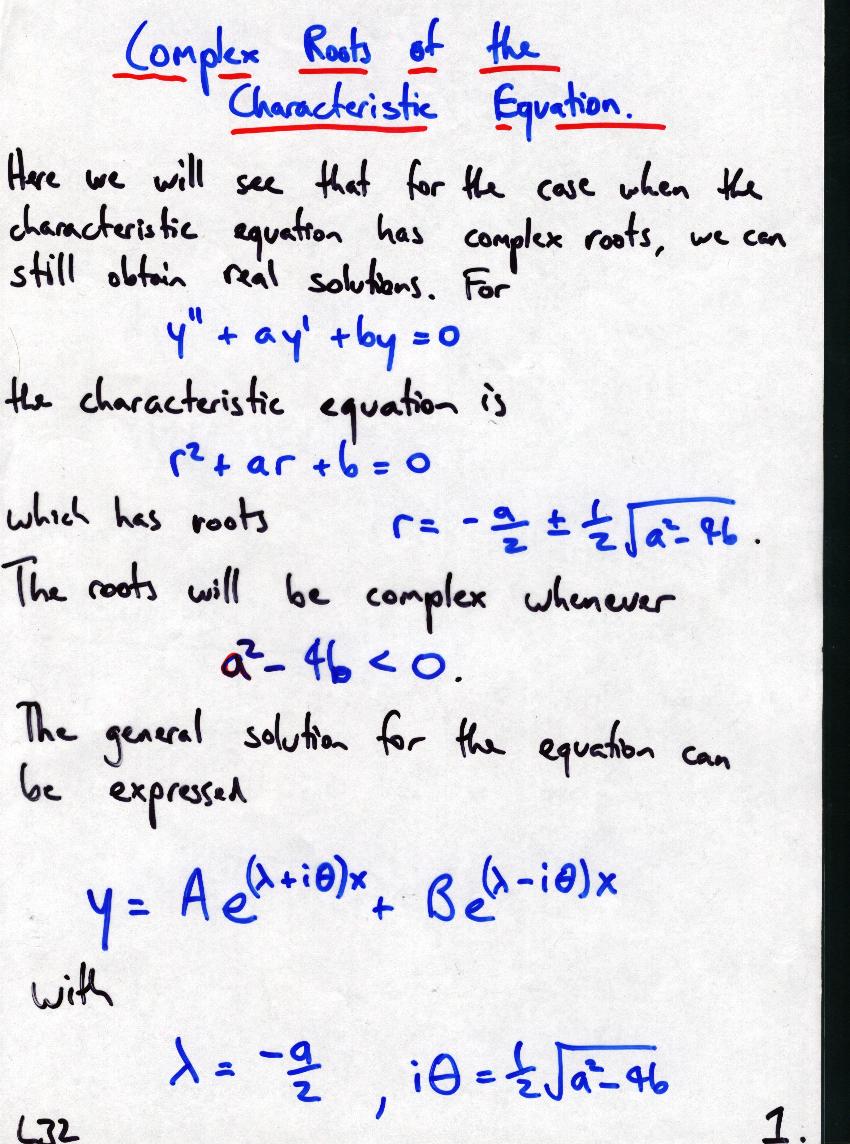 Complex Roots of the
Characteristic Equation.
Here we will see that for the case when the
characteristic equation has complex roots, we can
still obtain real solutions. For
y'' + ay' + by = 0
the characteristic equation is
r² + ar + b = 0
which has roots r = - a/2 ± 1/2 √(a² - 4b) .
The roots will be complex whenever
a² - 4b < 0.
The general solution for the equation can
be expressed
y = A e^((λ + iθ)x) + B e^((λ - iθ)x)
with
λ = -a/2 , iθ = 1/2 √(a² - 4b)
L32 1.